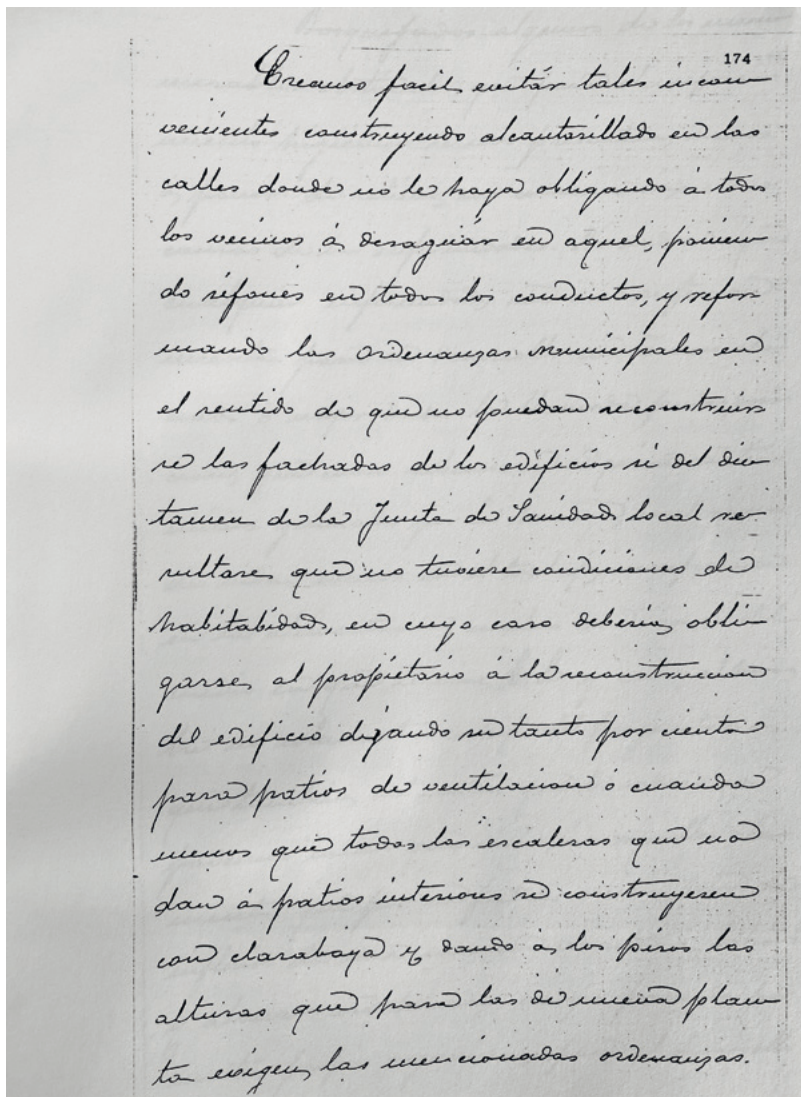 174
Creemos facil evitár tales incon
venientes construyendo alcantarillado en las
calles donde no le haya obligando á todos
los vecinos á desaguár en aquel, ponien
do sifones en todos los conductos, y refor
mando las ordenanzas municipales en
el sentido de que no puedan reconstruir
se las fachadas de los edificios si del dic
tamen de la Junta de Sanidad local re-
sultase que no tuviese condiciones de
habitabidad, en cuyo caso deberia obli
garse al propietário á la reconstruccion
del edificio dejando un tanto por ciento
para patios de ventilacion ó cuando
menos que todas las escaleras que no
dan á patios interiores se construyesen
con claraboya y dando á los pisos las
alturas que para las de nueva plan
ta exigen las mencionadas ordenanzas.